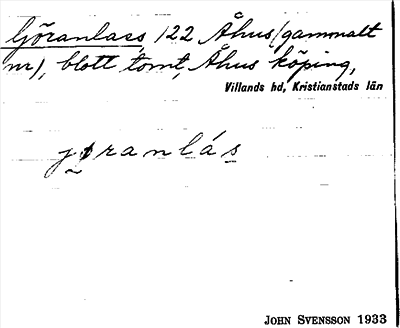 Göranlass, 122 Åhus (gammalt
nr), blott tomt, Åhus köping,
Villands hd, Kristianstads län
jøranlás
JOHN SVENSSON 1933